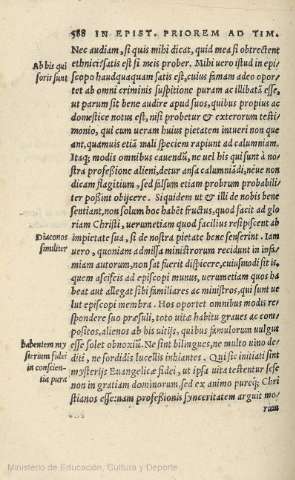 588 IN EPIST. PRIOREM AD TIM.
Nec audiam, si quis mihi dicat, quid mea si obtrectent
Ab his qui
ethnici? satis est si meis prober. Mihi vero istud in epi-
foris sunt
scopo haudquaquam satis est, cuius famam adeo oporte
t ab omni criminis suspitione puram ac illibatā esse,
ut parum sit bene audire apud suos, quibus propius ac
domestice notus est, nisi probetur & exterorum testi
monio, qui cum veram huius pietatem intueri non que
ant, quamuis etiā mali speciem rapiunt ad calumniam.
Itaq; modis omnibus cauendū, ne uel his qui sunt à no
stra professione alieni, detur ansa calumniādi, neue non
dicam flagitium, sed falsum etiam probrum probabili
ter possint obijcere. Siquidem ut & illi de nobis bene
sentiant, non solum hoc habet fructus, quod facit ad glo
riam Christi, uerumetiam quod facilius resipiscent ab
Diaconos
impietate sua, si de nostra pietate bene senserint. Iam
similiter
uero, quoniam admissa ministrorum recidunt in infa
miam autorum, non sat fuerit dispicere, cuiusmodi sit is,
quem asciscis ad episcopi munus, uerumetiam quos ha
beat aut allegat sibi familiares ac ministros, qui sunt ue
lut episcopi membra. Hos oportet omnibus modis re
spondere suo præsuli, toto uitæ habitu graues ac com
positos, alienos ab his uitijs, quibus famulorum uulgus
esse solet obnoxiū. Ne sint bilingues, ne multo uino de
habentem my
diti, ne sordidis lucellis inhiantes. Qui sic initiati sint
sterium fidei
mysterijs Euangelicæ fidei, ut ipsa uita testentur sese
in conscien-
non in gratiam dominorum, sed ex animo pureq; Chri
tia pura
stianos esse: nam professionis synceritatem arguit mo/
rum
Ministerio de Educación, Cultura y Deporte